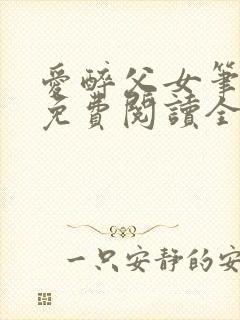 愛醉父女筆
免費閱讀全
一只安靜的安